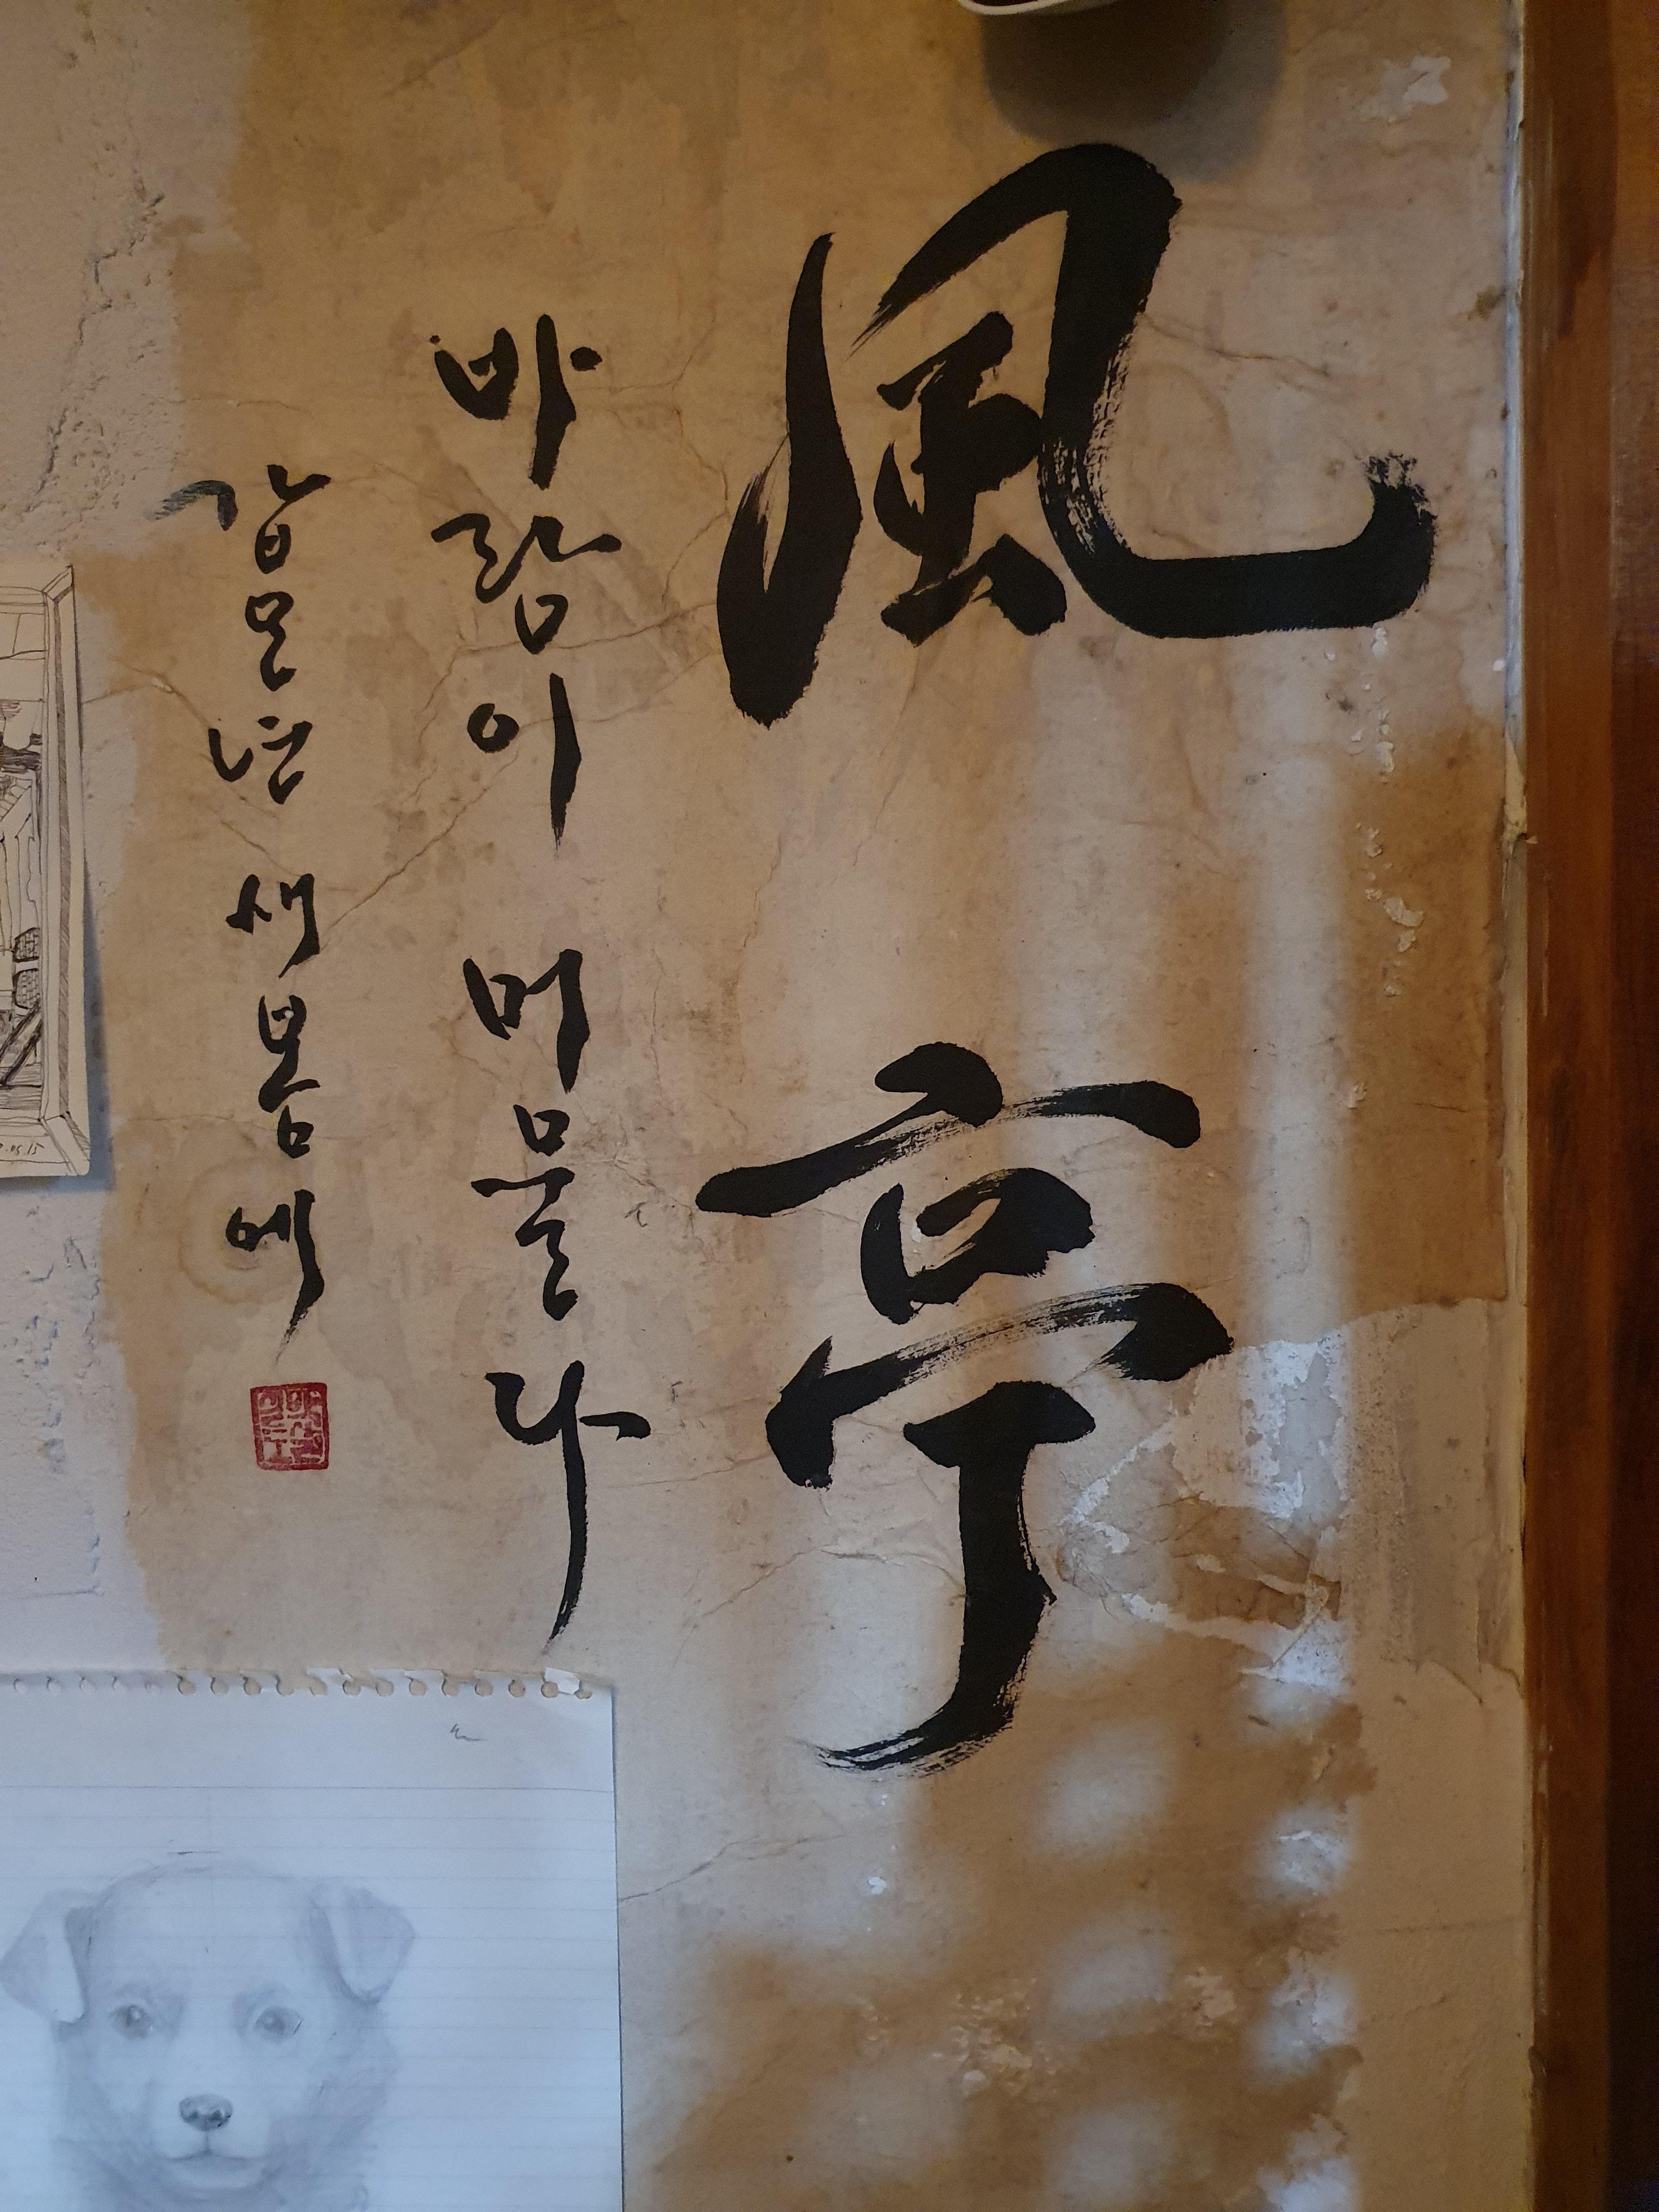 風亭
바람이 머물다
갑오년 새봄에